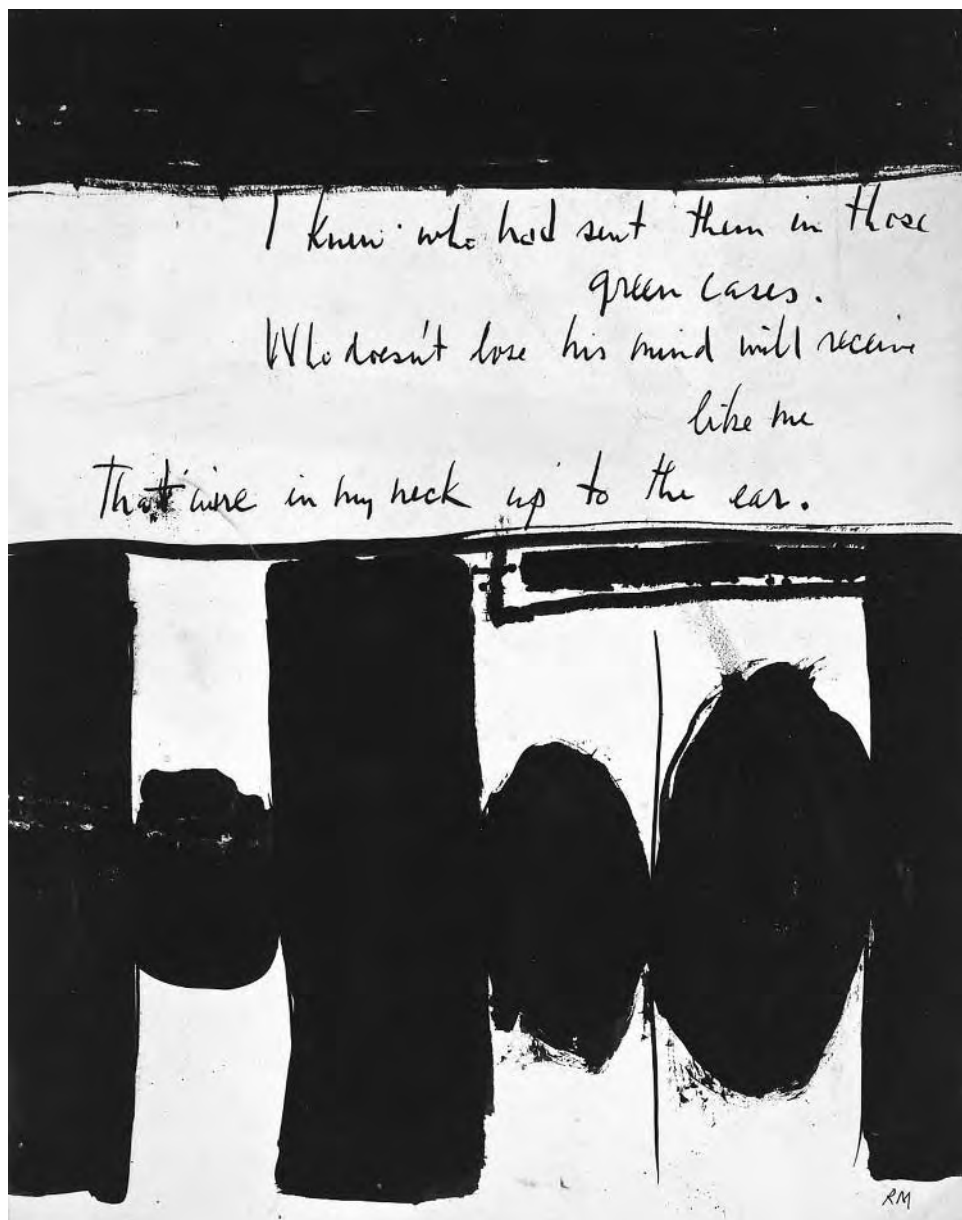 I knew who had sent them in those
green cases.
Who doesn't lose his mind will receive
like me
That wire in my neck up to the ear.
RM